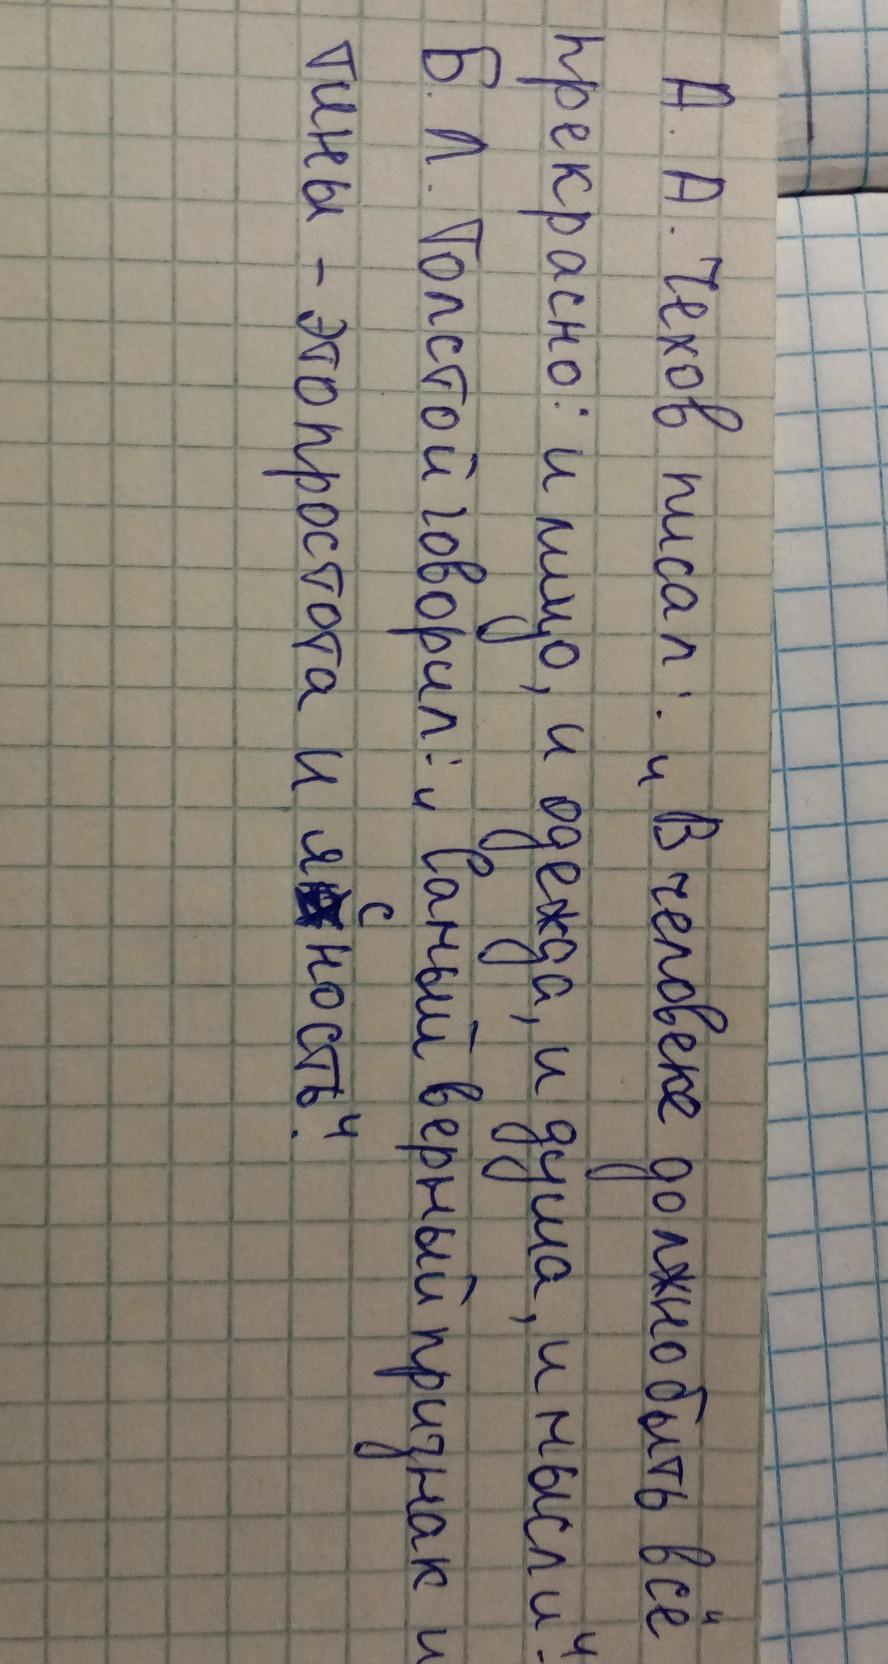 А. А. Чехов писал: "В человеке должно быть всё
прекрасно: и лицо, и одежда, и душа, и мысли".
Б. Л. Толстой говорил: "Самый верный признак и
тины - это простота и ясность".